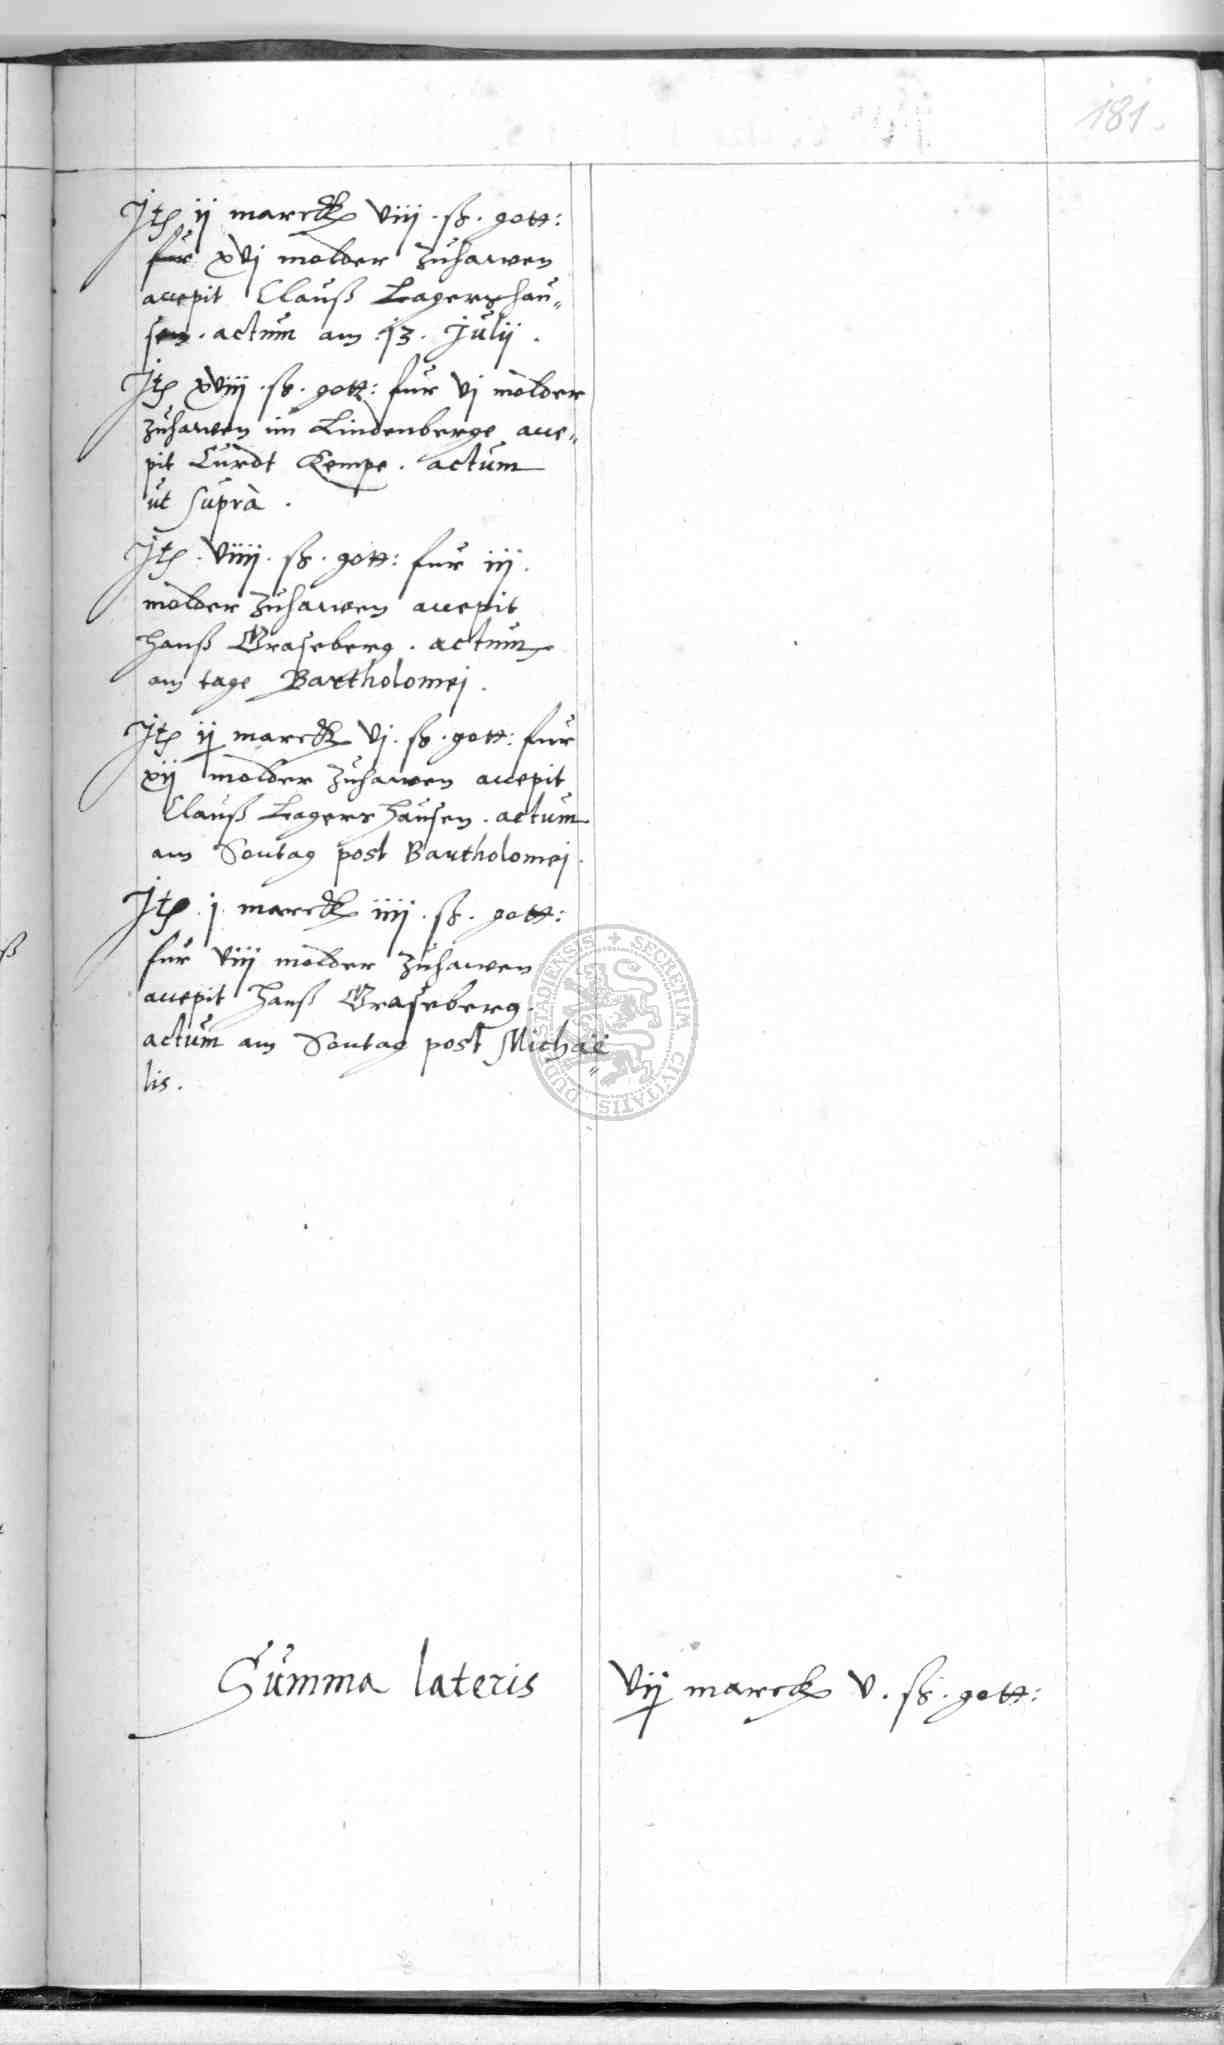 181.
Jtem ij marck viij . ß . gott:
fur xvj molder zuhawen
accepit Clauß Lagershau„
sen . actum am 13 . Julij .
Jtem xviij . ß . gott: fur vj molder
zuhawen im Lindenberge acce„
pit Curdt Kempe . actum
ut suprà .
Jtem . viiij . ß . gott: fur iij .
molder zuhawen accepit
Hanß Graseberg . actum
am tage Bartholomej .
Jtem ij marck vj . ß . gott: fur
xij molder zuhawen accepit
Clauß Lagershausen . actum
am Sontag post Bartholomej .
Jtem j marck iiij . ß . gott:
fur viij molder zuhawen
accepit Hanß Graseberg .
actum am Sontag post Michaë„
lis .
SECRETUM CIVITATIS DUDERSTADIENSIS
Summa lateris vij marck v . ß . gott: